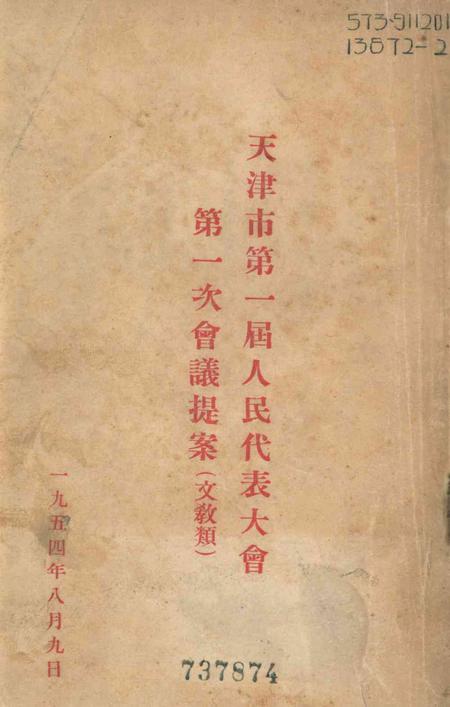 573·911201
13872-2
天津市第一屆人民代表大會
第一次會議提案(文教類)
一九五四年八月九日
737874